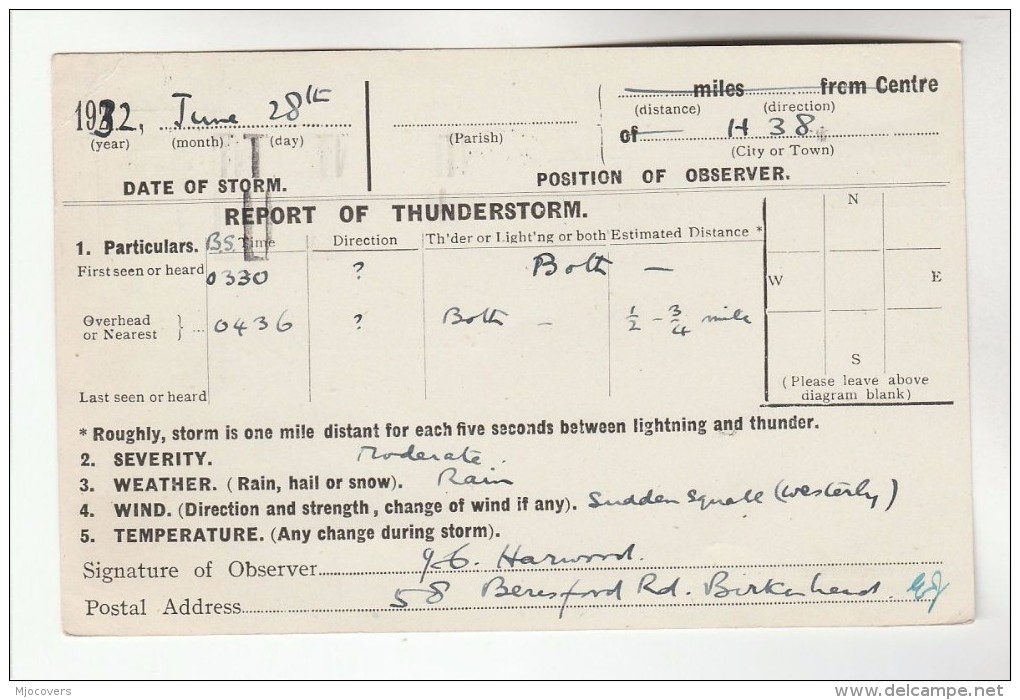 1932, June 28th
miles from Centre
(year) (month) (day) (Parish) (distance) (direction)
of H 38
(City or Town)
DATE OF STORM. POSITION OF OBSERVER.
REPORT OF THUNDERSTORM.
1. Particulars. B.S. Time Direction Th'der or Light'ng or both Estimated Distance *
First seen or heard 0330 ? Both —
Overhead or Nearest } ... 0436 ? Both – 1/2 - 3/4 mile
Last seen or heard
N
W E
S
(Please leave above
diagram blank)
* Roughly, storm is one mile distant for each five seconds between lightning and thunder.
2. SEVERITY. Moderate.
3. WEATHER. (Rain, hail or snow). Rain
4. WIND. (Direction and strength, change of wind if any). Sudden Squall (Westerly)
5. TEMPERATURE. (Any change during storm).
Signature of Observer Harwood.
Postal Address 58 Beresford Rd. Birkenhead.
Mjocovers
delcampe.net